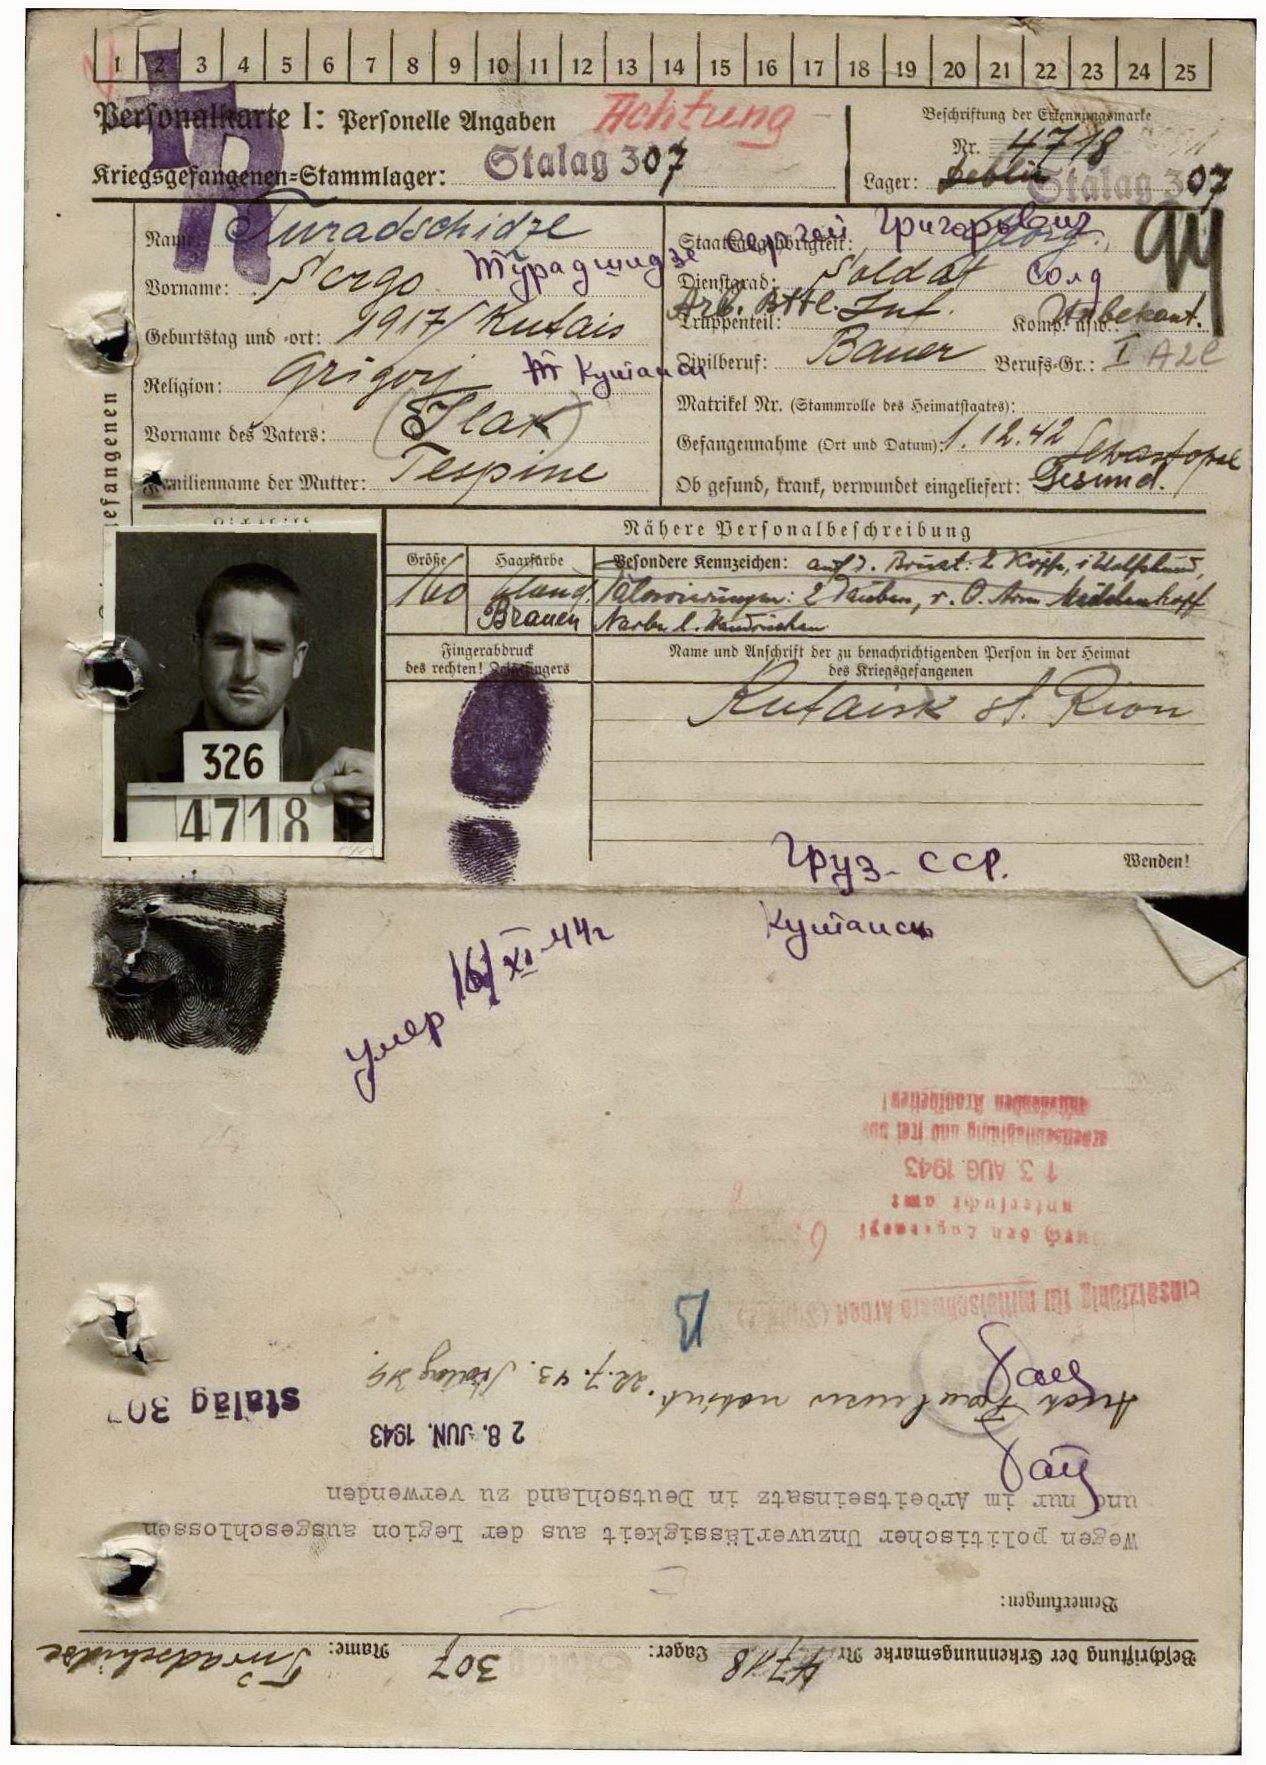 1 2 3 4 5 6 7 8 9 10 11 12 13 14 15 16 17 18 19 20 21 22 23 24 25
Personalkarte I: Personelle Angaben
Achtung
Beschriftung der Erkennungsmarke
Nr. 4718
Kriegsgefangenen=Stammlager: Stalag 307
Lager: Deblin Stalag 307
Name: Turadschidze
Staatsangehörigkeit: Georg.
Сергей Григорьевич
Vorname: Sergo
Турадшидзе
Dienstgrad: Soldat
Солд
Geburtstag und =ort: 1917/Kutais
Arb. Bttl.
Truppenteil: Inf. Komp. usw.: Unbekant.
Religion: Grigorj
Кутаиси
Zivilberuf: Bauer Berufs=Gr.: I A2l
Matrikel Nr. (Stammrolle des Heimatstaates):
Vorname des Vaters:
Gefangennahme (Ort und Datum): 1.12.42 Sewastopol
Familienname der Mutter: Tespine
Ob gesund, krank, verwundet eingeliefert: Gesund.
efangenen
Nähere Personalbeschreibung
Größe
160
Haarfarbe
Brauen
Besondere Kennzeichen: auf d. Brust: 2 Köpfe,
Tätowierungen: 2 Tauben, r. O. Arm Mädchenkopf
Narbe l.
Fingerabdruck
des rechten! Zeigefingers
Name und Anschrift der zu benachrichtigenden Person in der Heimat
des Kriegsgefangenen
Kutaisk st. Rion
326
4718
Груз- ССР.
Wenden!
Кутаись
умер 16/XI 44г
Beschriftung der Erkennungsmarke Nr 4718 Lager: 307 Name: Turadschidse
Bemerkungen:
Wegen politischer Unzuverlässigkeit aus der Legion ausgeschlossen
und nur im Arbeitseinsatz in Deutschland zu verwenden
28. JUN. 1943
stalag 307
22.7.43. Stalag
Einsatzfähig für mittelschwere Arbeit
durch den Lagerarzt
untersucht am:
13. AUG. 1943
arbeitseinsatzfähig und frei von
ansteckenden Krankheiten!